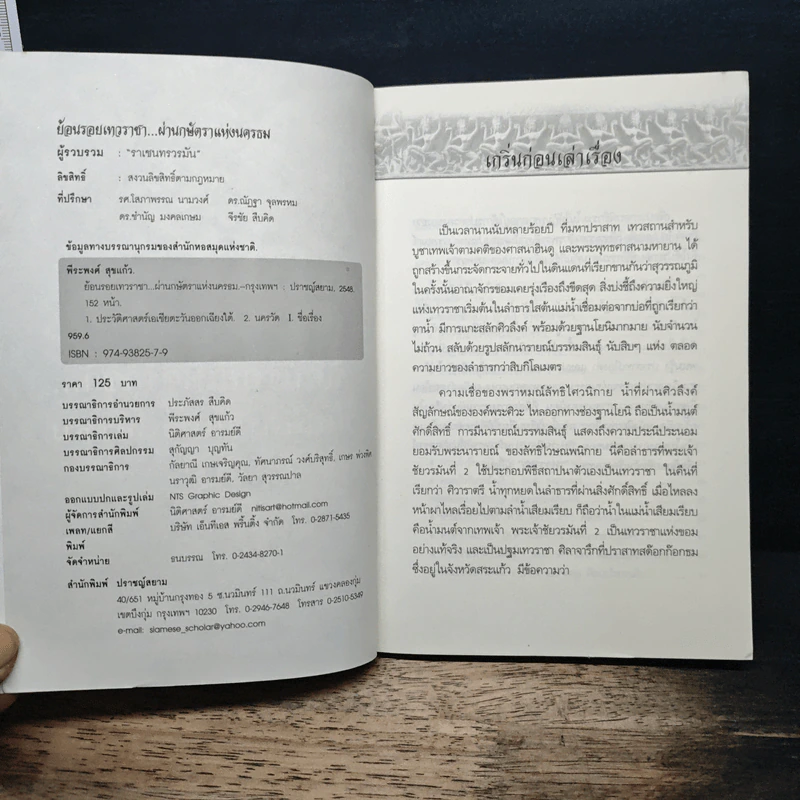 ย้อนรอยเทวราชา...ผ่านกษัตราแห่งนครธม
ผู้รวบรวม : "ราเชนทรวรมัน"
ลิขสิทธิ์ : สงวนลิขสิทธิ์ตามกฎหมาย
ที่ปรึกษา รศ.โสภาพรรณ นามวงศ์ ดร.ณัฏฐา จุลพรหม
ดร.ชำนัญ มงคลเกษม จีรชัย สืบคิด
ข้อมูลทางบรรณานุกรมของสำนักหอสมุดแห่งชาติ.
พีระพงศ์ สุขแก้ว.
ย้อนรอยเทวราชา...ผ่านกษัตราแห่งนครธม.--กรุงเทพฯ : ปราชญ์สยาม. 2548.
152 หน้า.
1. ประวัติศาสตร์เอเชียตะวันออกเฉียงใต้. 2. นครวัด I. ชื่อเรื่อง
959.6
ISBN : 974-93825-7-9
ราคา 125 บาท
บรรณาธิการอำนวยการ ประภัสสร สืบคิด
บรรณาธิการบริหาร พีระพงศ์ สุขแก้ว
บรรณาธิการเล่ม นิติศาสตร์ อารมย์ดี
บรรณาธิการศิลปกรรม สุกัญญา บุญทัน
กองบรรณาธิการ กัลยาณี เกษเจริญคุณ, ทัศนาภรณ์ วงศ์บริสุทธิ์, เกษร พ่วงทิศ
นราวุฒิ อารมย์ดี, วัลยา สุวรรณปาล
ออกแบบปกและรูปเล่ม NTS Graphic Design
ผู้จัดการสำนักพิมพ์ นิติศาสตร์ อารมย์ดี nitisart@hotmail.com
เพลท/แยกสี บริษัท เอ็นทีเอส พริ้นติ้ง จำกัด โทร. 0-2871-5435
พิมพ์
จัดจำหน่าย ธนบรรณ โทร. 0-2434-8270-1
สำนักพิมพ์ ปราชญ์สยาม
40/651 หมู่บ้านกรุงทอง 5 ซ.นวมินทร์ 111 ถ.นวมินทร์ แขวงคลองกุ่ม
เขตบึงกุ่ม กรุงเทพฯ 10230 โทร. 0-2946-7648 โทรสาร 0-2510-5349
e-mail: siamese_scholar@yahoo.com
เกริ่นก่อนเล่าเรื่อง
เป็นเวลานานนับหลายร้อยปี ที่มหาปราสาท เทวสถานสำหรับ
บูชาเทพเจ้าตามคติของศาสนาฮินดู และพระพุทธศาสนามหายาน ได้
ถูกสร้างขึ้นกระจัดกระจายทั่วไปในดินแดนที่เรียกขานกันว่าสุวรรณภูมิ
ในครั้งนั้นอาณาจักรขอมเคยรุ่งเรืองถึงขีดสุด สิ่งบ่งชี้ถึงความยิ่งใหญ่
แห่งเทวราชาเริ่มต้นในลำธารใสต้นแม่น้ำเชื่อมต่อจากบ่อที่ถูกเรียกว่า
ตาน้ำ มีการแกะสลักศิวลึงค์ พร้อมด้วยฐานโยนิมากมาย นับจำนวน
ไม่ถ้วน สลับด้วยรูปสลักนารายณ์บรรทมสินธุ์ นับสิบๆ แห่ง ตลอด
ความยาวของลำธารกว่าสิบกิโลเมตร
ความเชื่อของพราหมณ์ลัทธิไศวนิกาย น้ำที่ผ่านศิวลึงค์
สัญลักษณ์ขององค์พระศิวะ ไหลออกทางช่องฐานโยนิ ถือเป็นน้ำมนต์
ศักดิ์สิทธิ์ การมีนารายณ์บรรทมสินธุ์ แสดงถึงความประนีประนอม
ยอมรับพระนารายณ์ ของลัทธิไวษณพนิกาย นี่คือลำธารที่พระเจ้า
ชัยวรมันที่ 2 ใช้ประกอบพิธีสถาปนาตัวเองเป็นเทวราชา ในคืนที่
เรียกว่า ศิวาราตรี น้ำทุกหยดในลำธารที่ผ่านสิ่งศักดิ์สิทธิ์ เมื่อไหลลง
หน้าผาไหลเรื่อยไปตามลำน้ำเสียมเรียบ ก็ถือว่าน้ำในแม่น้ำเสียมเรียบ
คือน้ำมนต์จากเทพเจ้า พระเจ้าชัยวรมันที่ 2 เป็นเทวราชาแห่งขอม
อย่างแท้จริง และเป็นปฐมเทวราชา ศิลาจารึกที่ปราสาทสด๊อกก๊อกธม
ซึ่งอยู่ในจังหวัดสระแก้ว มีข้อความว่า